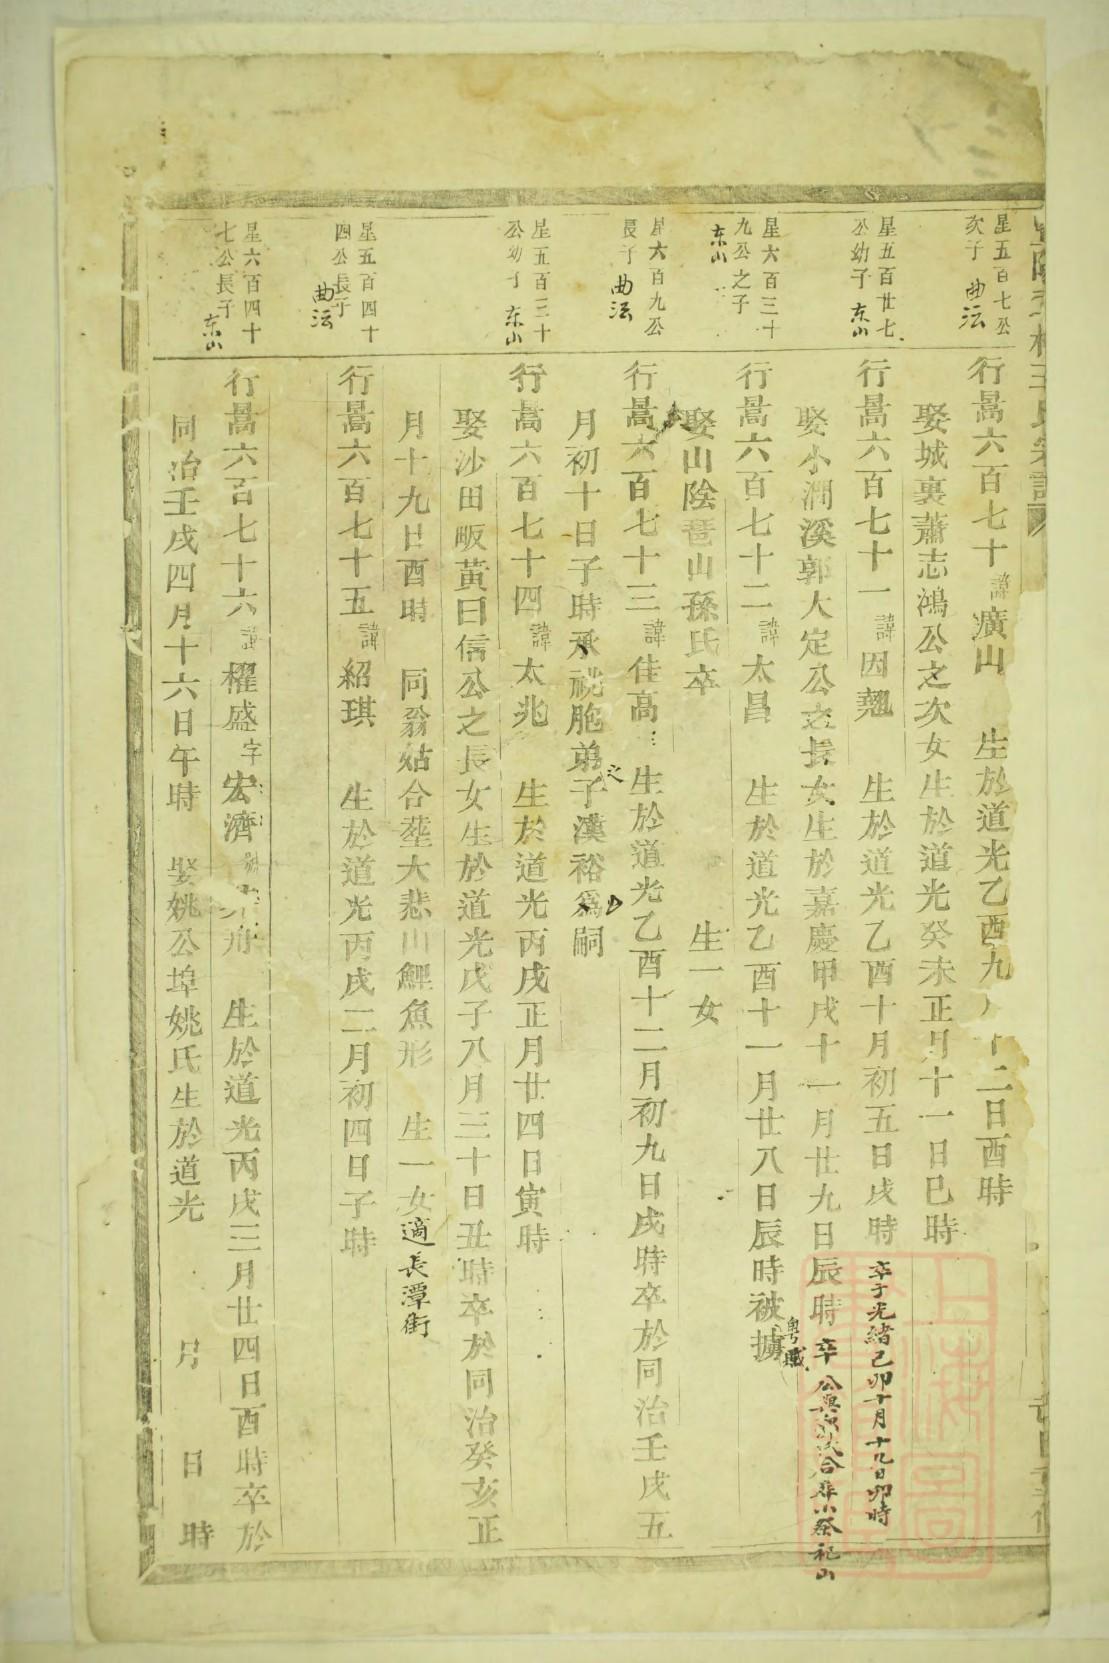 星五百七公
次子 曲沄
行暠六百七十 諱 廣山 生於道光乙酉九 十二日酉時
娶城裏蕭志鴻公之次女生於道光癸未正月十一日巳時
星五百廿七
公幼子 东山
行暠六百七十一 諱 因翹 生於道光乙酉十月初五日戌時 卒于光緒己卯十月十九日卯時
娶小澗溪郭大定公之長女生於嘉慶甲戌十一月廿九日辰時 卒 公與 合 小祭祀山
星六百三十
九公之子
东山
行暠六百七十二 諱 太昌 生於道光乙酉十一月廿八日辰時被擄 粵
娶山陰琶山孫氏卒 生一女
星六百九公
長子 曲沄
行暠六百七十三 諱 佳高 生於道光乙酉十二月初九日戌時卒於同治壬戌五
月初十日子時承祧胞弟之子漢裕爲嗣
星五百三十
公幼子 东山
行暠六百七十四 諱 太兆 生於道光丙戌正月廿四日寅時
娶沙田畈黃曰信公之長女生於道光戊子八月三十日丑時卒於同治癸亥正
月十九日酉時 同翁姑合塟大悲山鯉魚形 生一女適長潭街
星五百四十
四公長子
曲沄
行暠六百七十五 諱 紹琪 生於道光丙戌二月初四日子時
星六百四十
七公長子
东山
行暠六百七十六 諱 櫂盛 字 宏濟 號 舟 生於道光丙戌三月廿四日酉時卒於
同治壬戌四月十六日午時 娶姚公埠姚氏生於道光 月 日 時